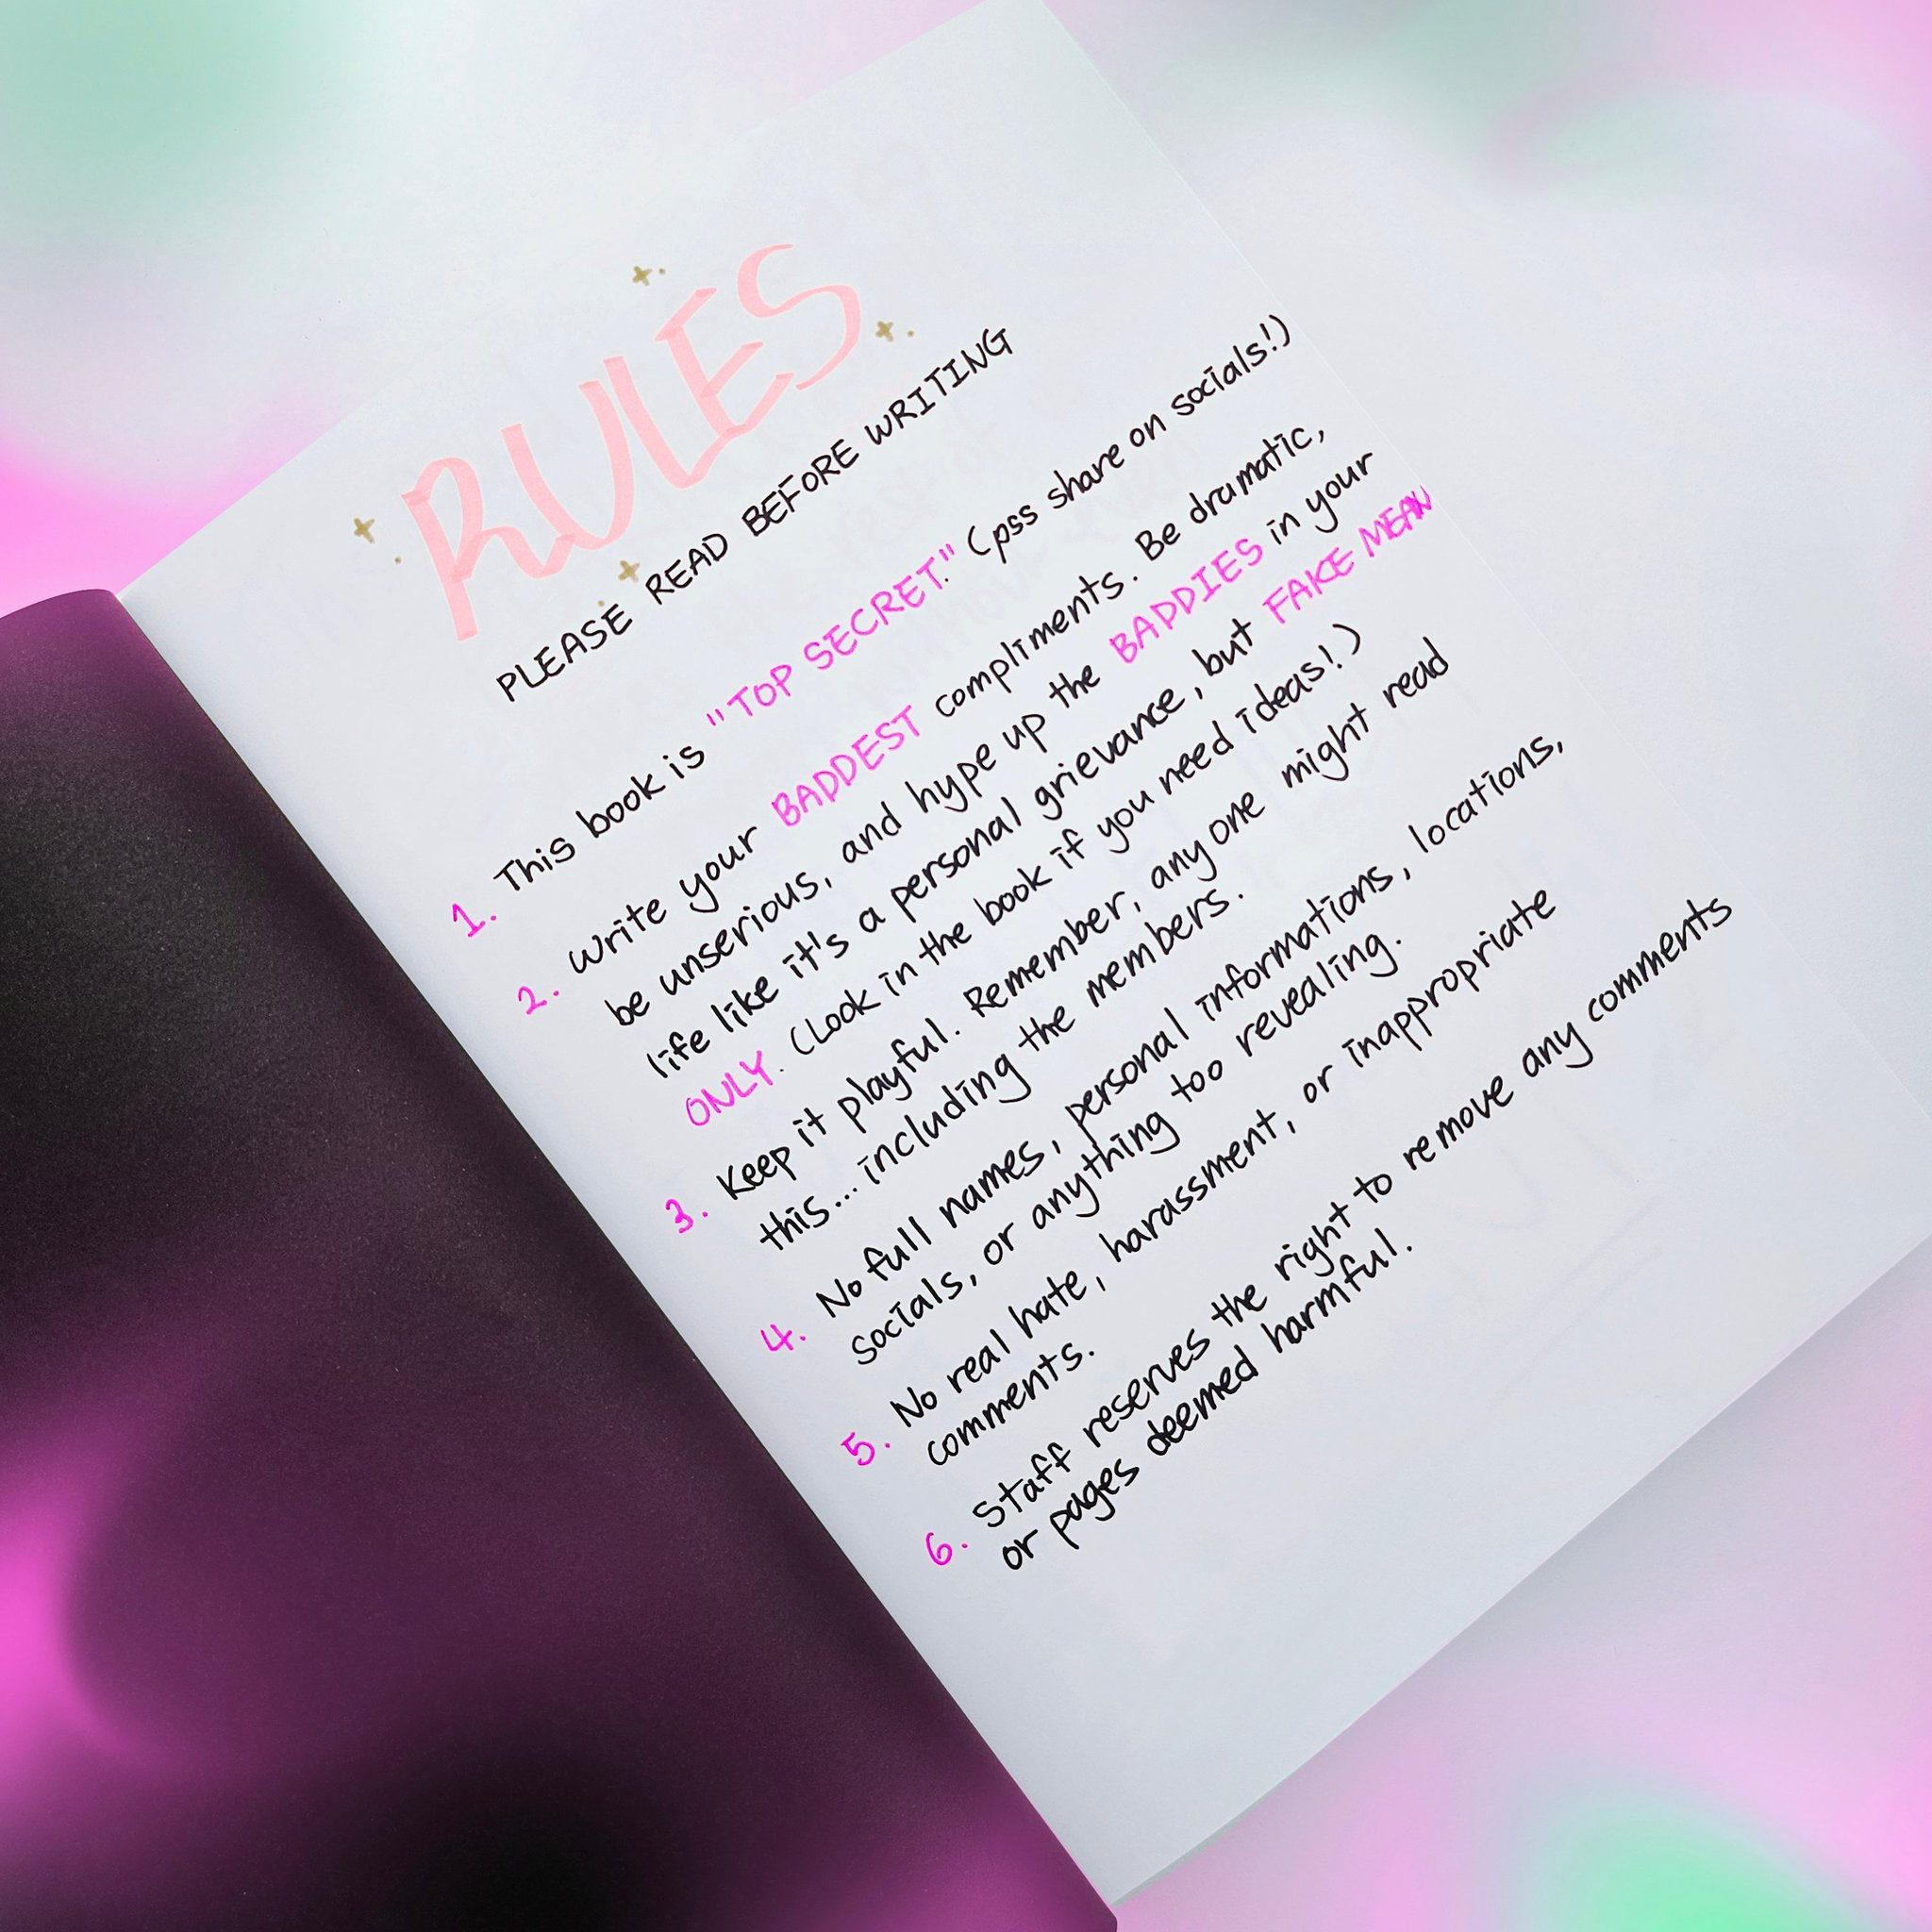 RULES
PLEASE READ BEFORE WRITING
1. This book is "TOP SECRET." (pss share on socials!)
2. Write your BADDEST compliments. Be dramatic,
be unserious, and hype up the BADDIES in your
life like it's a personal grievance, but FAKE MEAN
ONLY. (Look in the book if you need ideas!)
3. Keep it playful. Remember, anyone might read
this... including the members.
4. No full names, personal informations, locations,
socials, or anything too revealing.
5. No real hate, harassment, or inappropriate
comments.
6. Staff reserves the right to remove any comments
or pages deemed harmful.